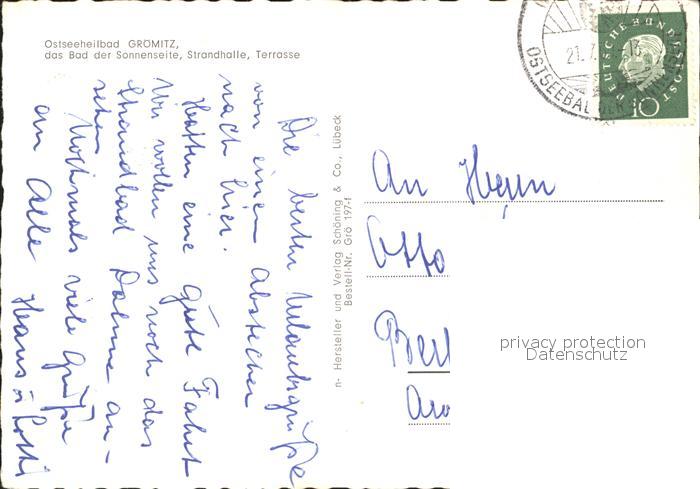 Ostseeheilbad GRÖMITZ,
das Bad der Sonnenseite, Strandhalle, Terrasse
Die besten Urlaubsgrüße
von einem Abstecher
nach hier.
Hatten eine gute Fahrt
Wir wollen uns noch das
Strandbad Dahme an-
sehen
Nochmals viele Grüße
an Alle Hans u Lotti
n- Hersteller und Verlag Schöning & Co., Lübeck
Bestell-Nr. Grö 197-f
DEUTSCHE BUNDESPOST
10
21.7.
OSTSEEBAD
An Herrn
Otto
Berl
privacy protection
Datenschutz